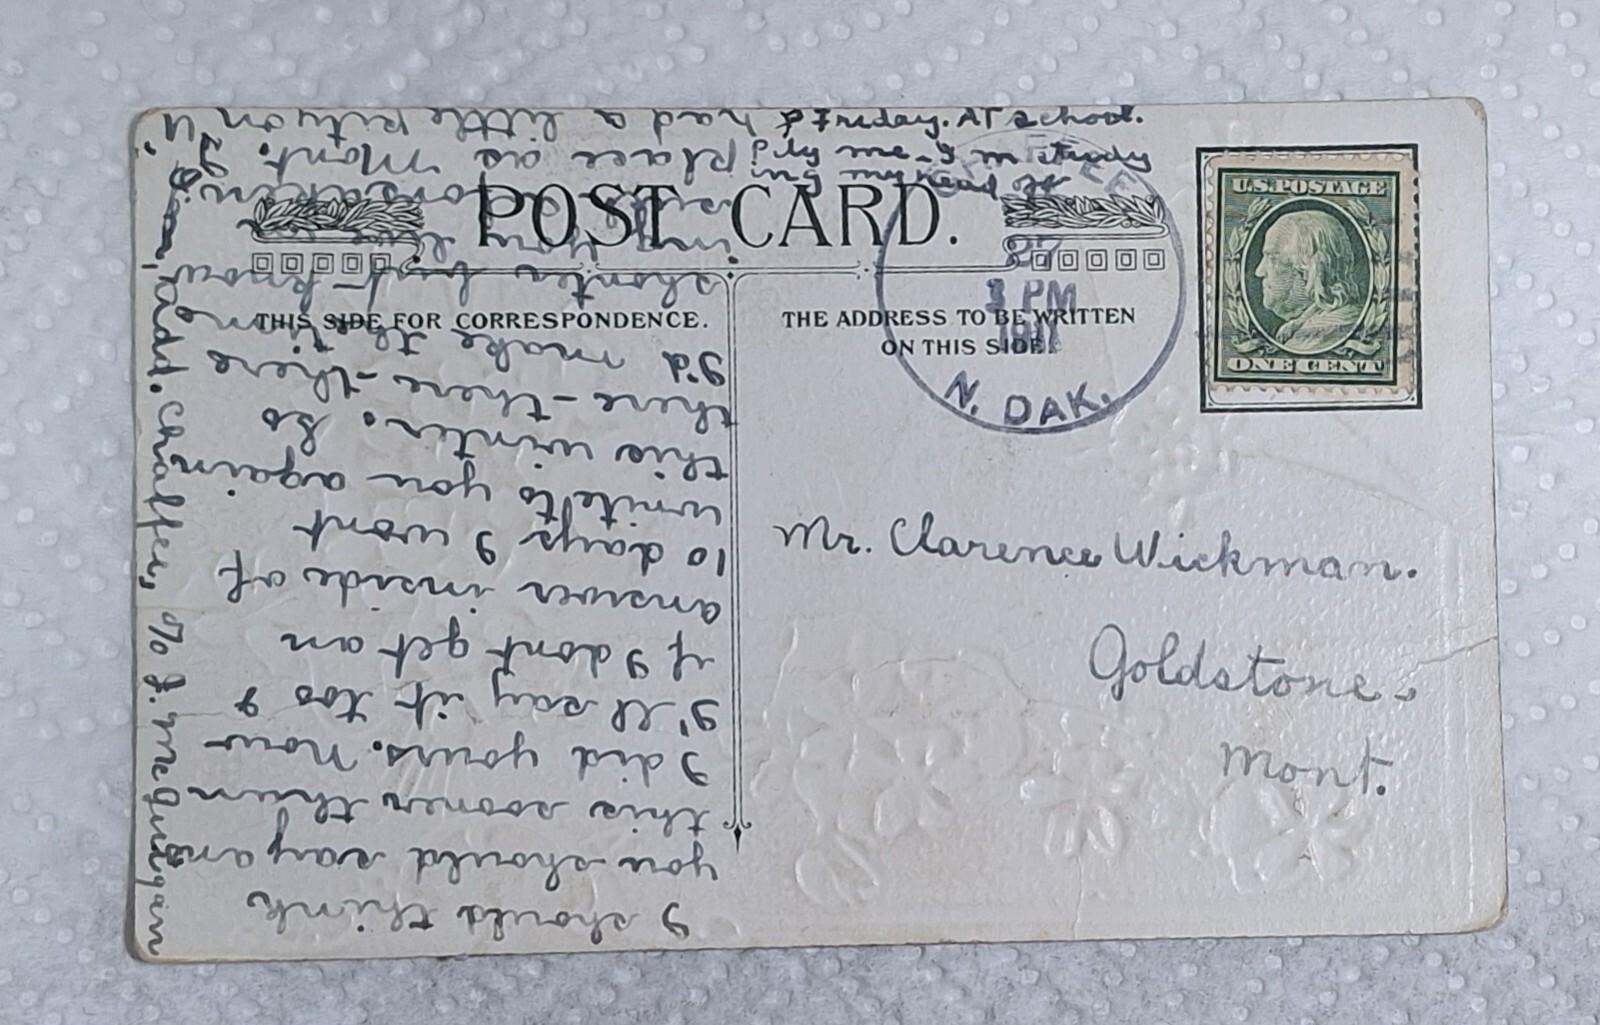 POST CARD.
THIS SIDE FOR CORRESPONDENCE.
THE ADDRESS TO BE WRITTEN
ON THIS SIDE.
U.S. POSTAGE
ONE CENT
PM
191
N. DAK.
Mr. Clarence Wickman.
Goldstone.
Mont.
I should think
you should say ans
this sooner than
I did yours. Now
I'll say it too &
if I dont get an
answer inside of
10 days I wont
write to you again
this winter. So
there - there - there
I'd make the time
shorter but I know
you live
forsaken
place as Mont.
had a little pity on U
Friday. At school.
Pity me - I'm study
ing my head off
Add. Chaffee, c/o J. McGuigan